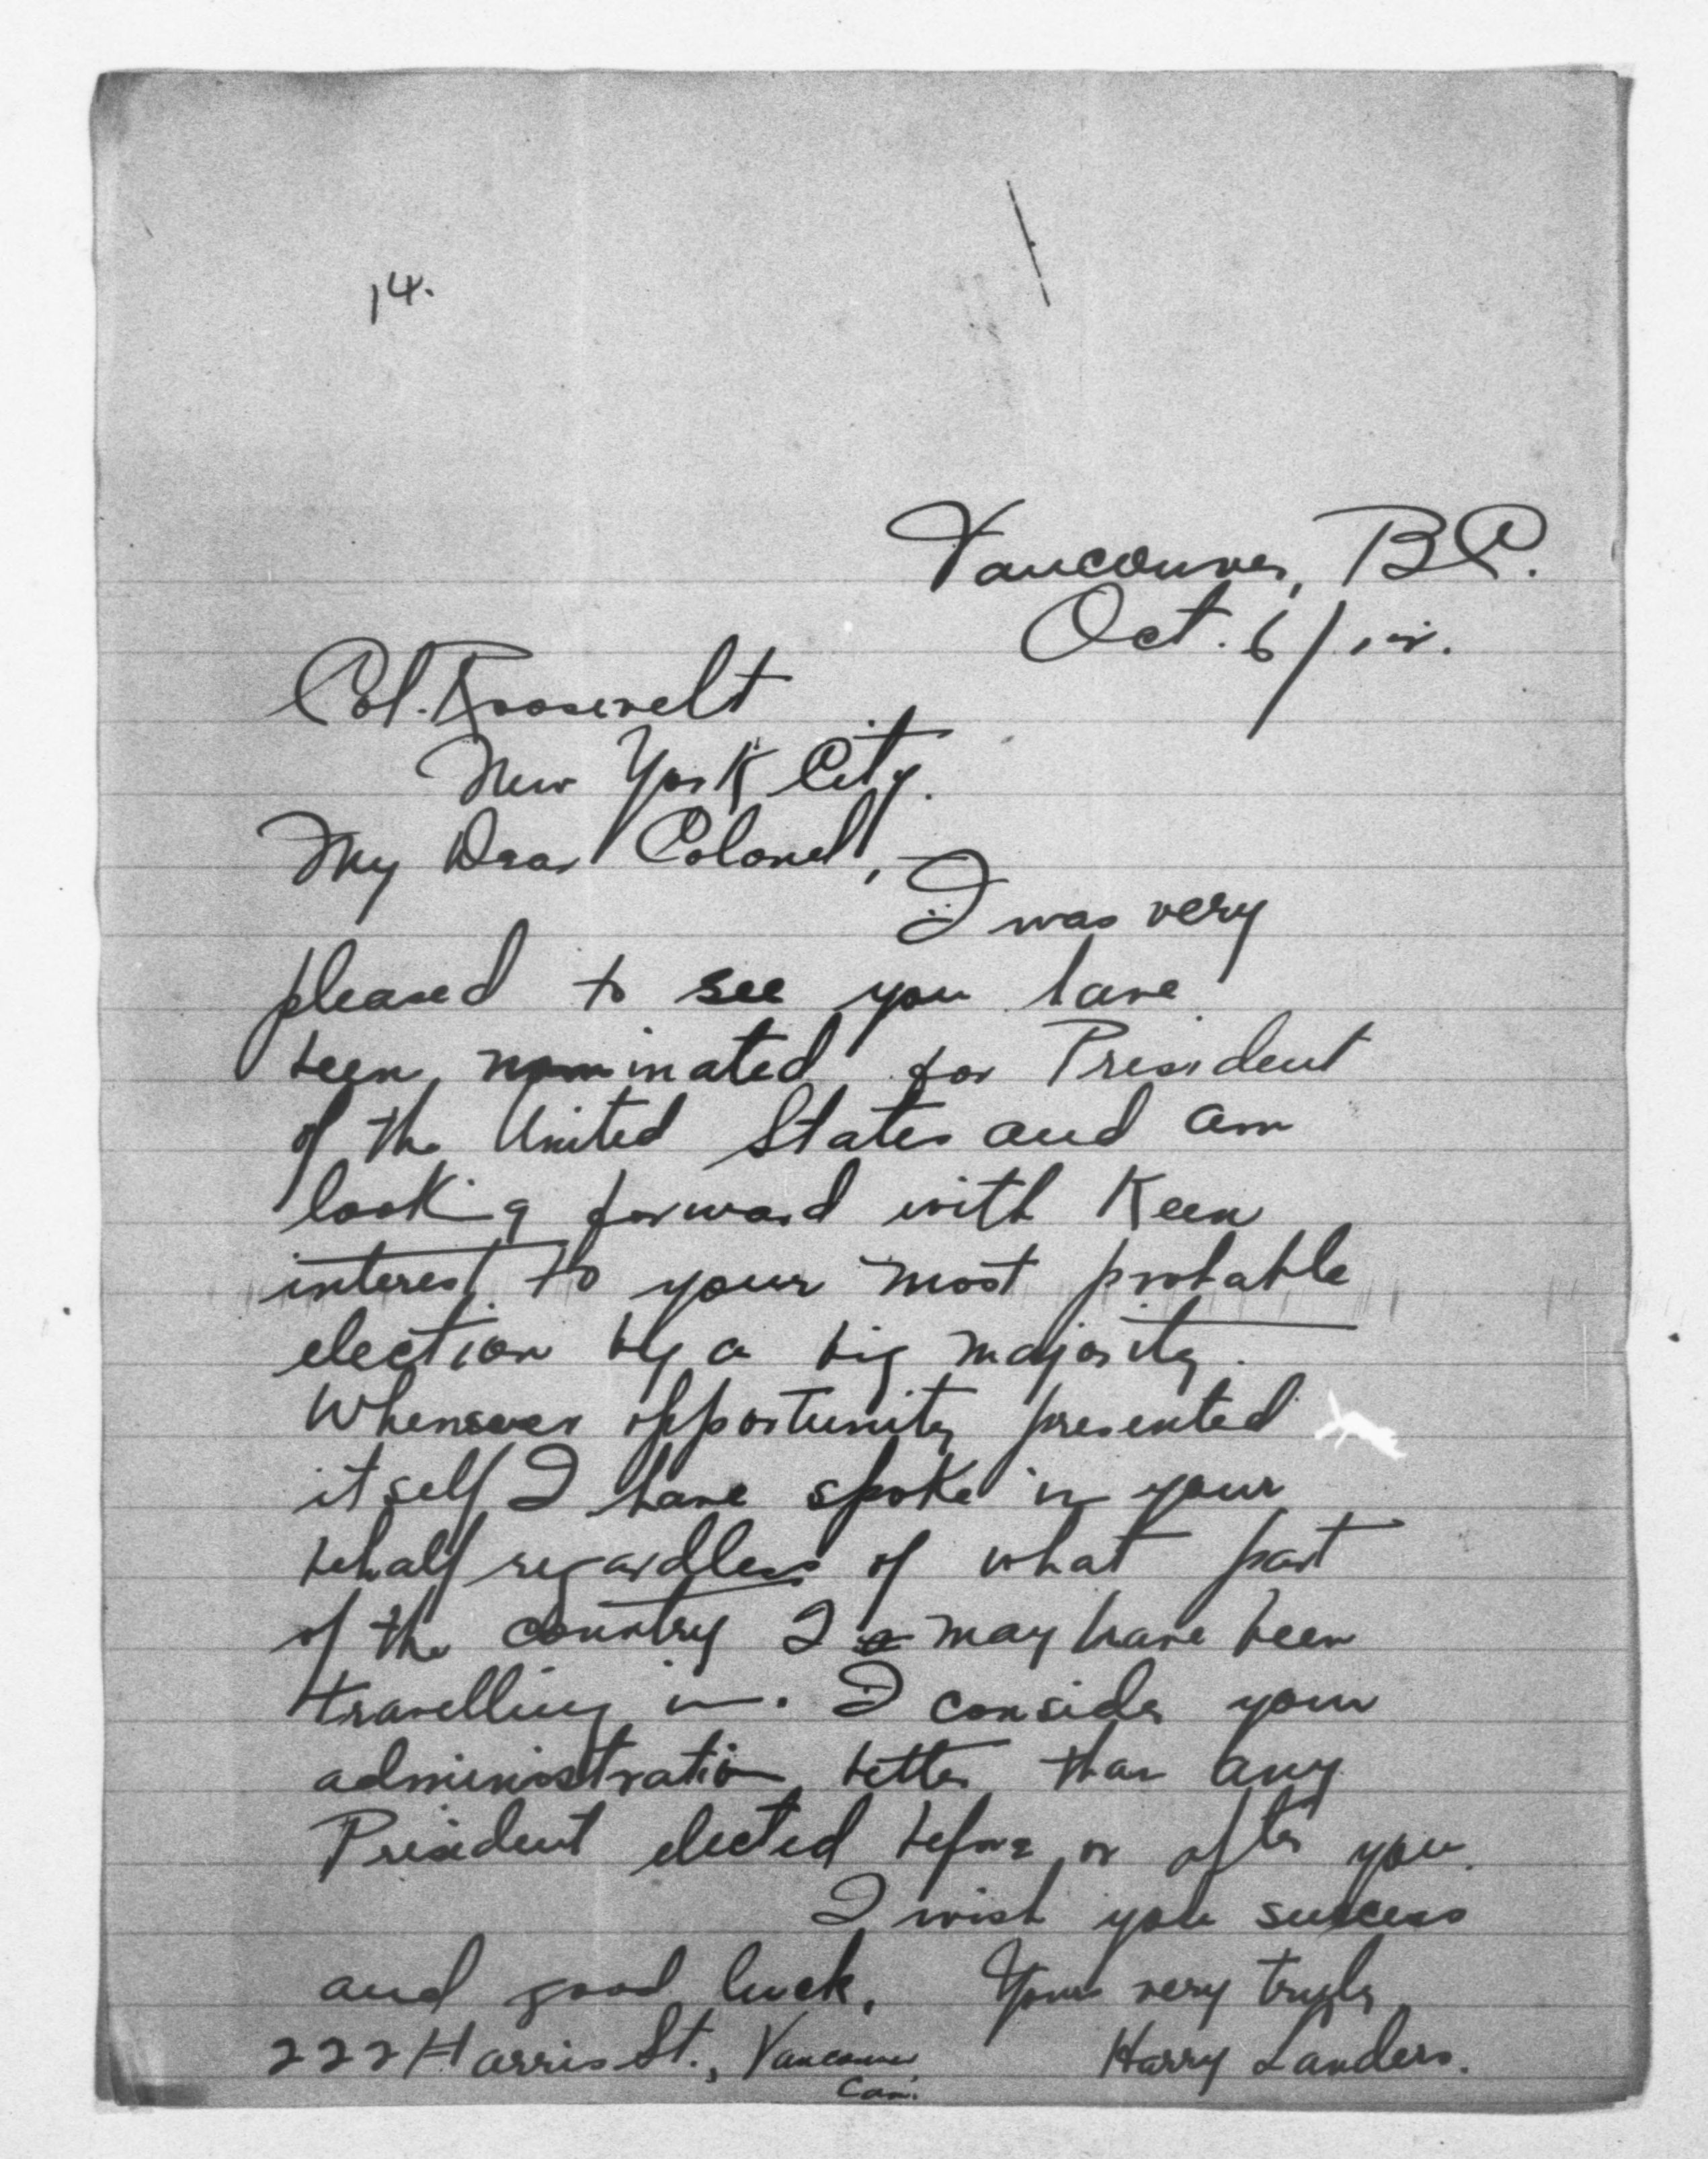 14.
Vancouver, B.C.
Oct. 6/12.
Col. Roosevelt
New York City.
My Dear Colonel,
I was very
pleased to see you have
been nominated for President
of the United States and am
looking forward with Keen
interest to your most probable
election by a big majority.
Whenever opportunity presented
itself I have spoke in your
behalf regardless of what part
of the country I may have been
travelling in. I consider your
administration better than any
President elected before or after you.
I wish you success
and good luck. Yours very truly,
222 Harris St., Vancouver Harry Landers.
Can.